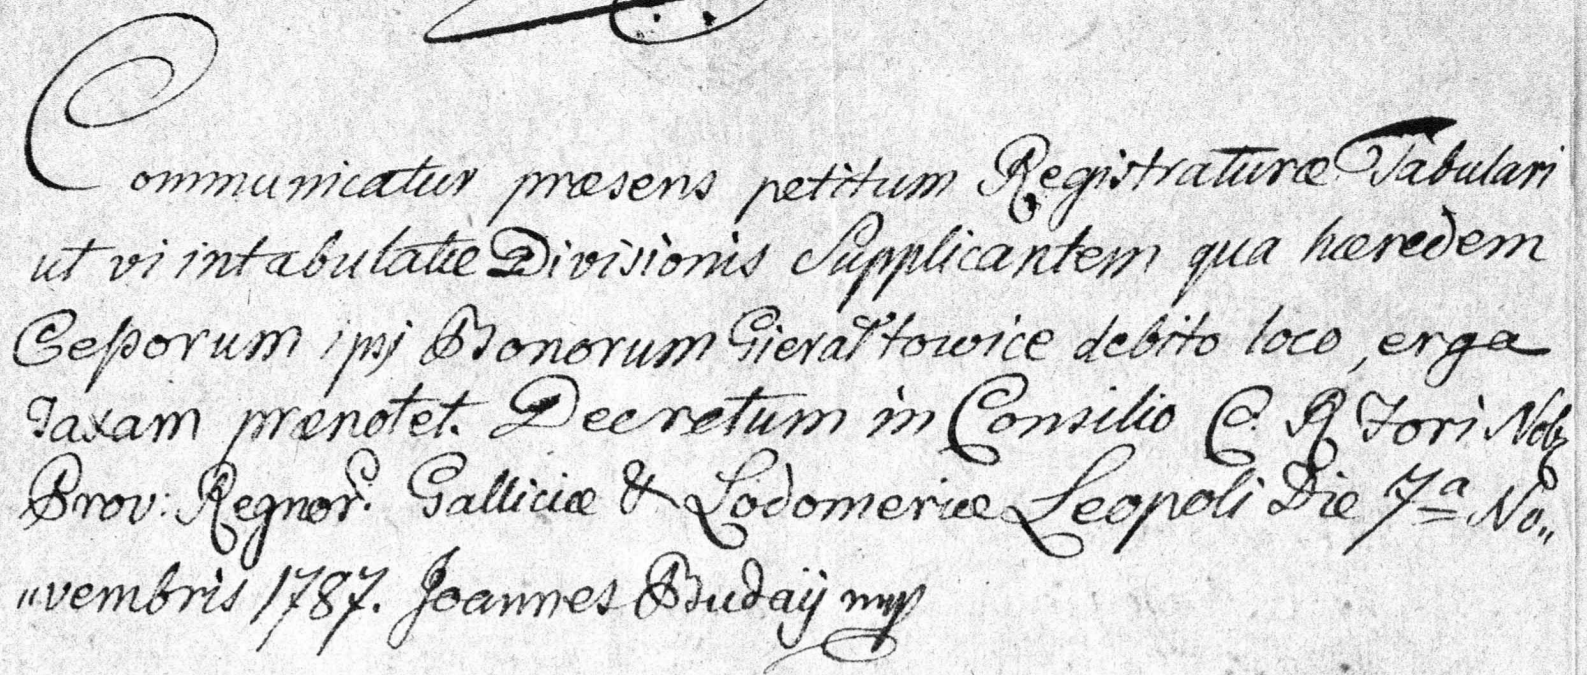 Communicatur præsens petitum Registraturæ Tabulari
ut vi intabulatæ Divisionis Supplicantem qua hæredem
Ceßorum ipsj Bonorum Gierałtowice debito loco, erga
Taxam prænotet. Decretum in Consilio C. R Fori Nob
Prov: Regnor. Galliciæ & Lodomeriæ Leopoli Die 7ª No„
„vembris 1787. Joannes Budaÿ mp